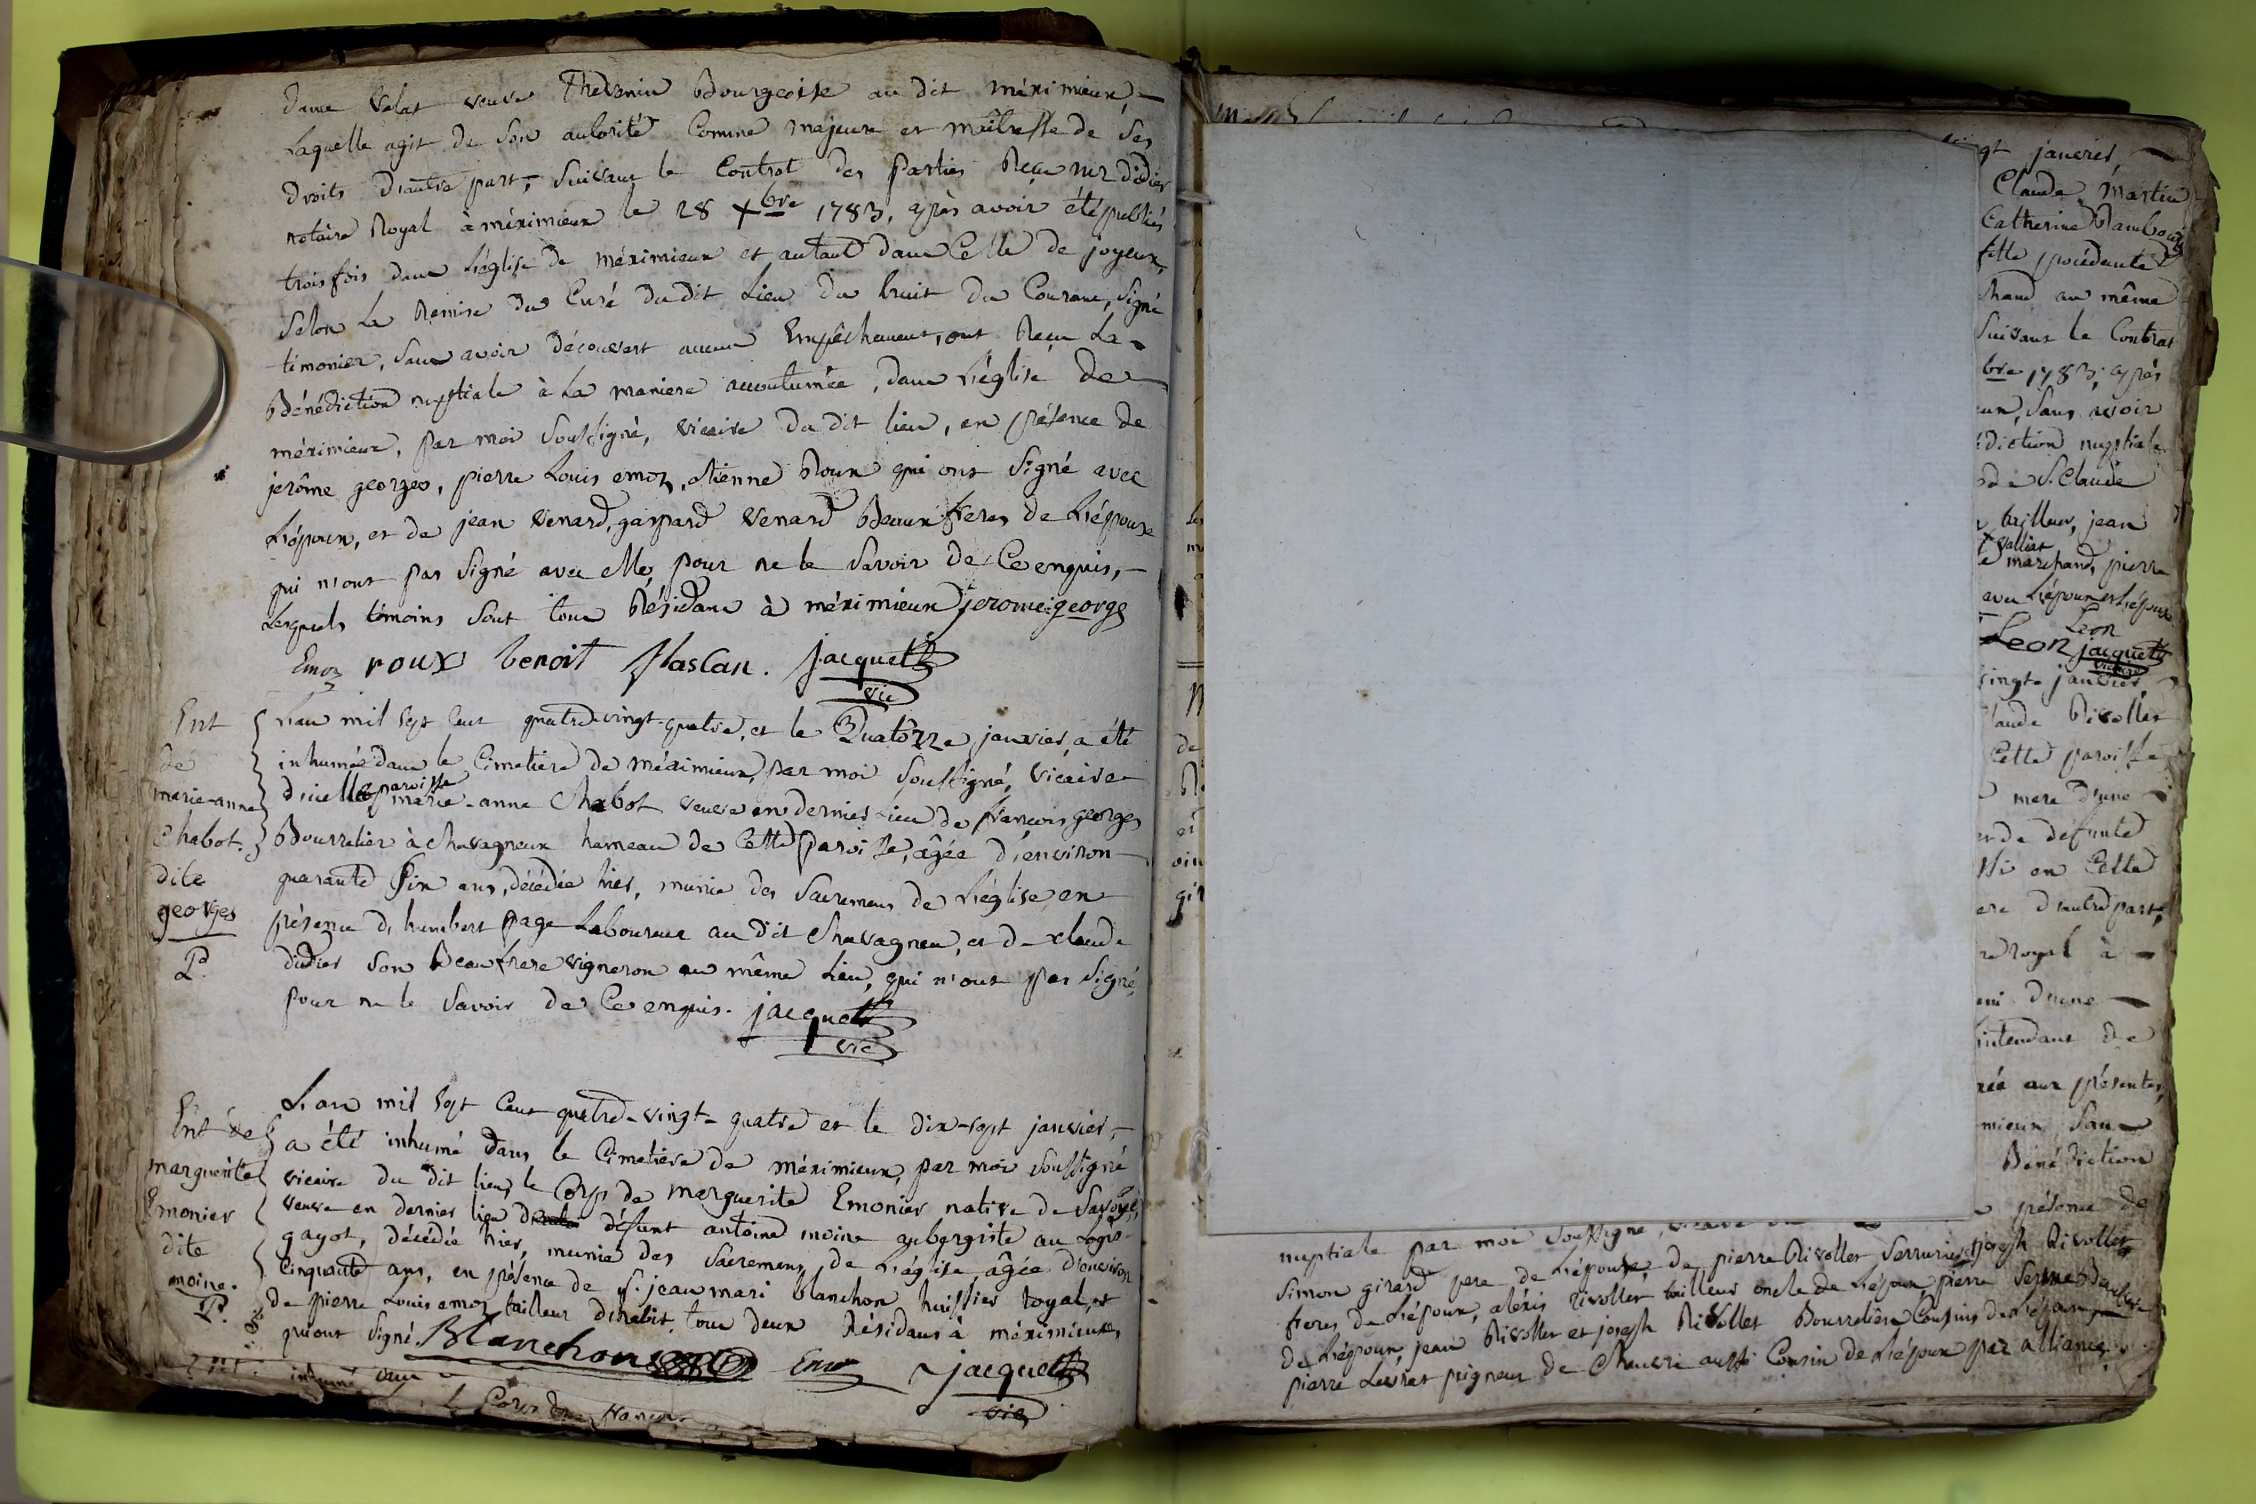 dame Velat veuve Thevenin Bourgeoise au dit méximieux,
Laquelle agit de son autorité Comme majeure et maîtresse de ses
droits d'autre part, suivant le Contrat des parties Reçu me didier
notaire Royal à méximieux le 28 xbre 1783, après avoir été publiés
trois fois dans L'église de méximieux et autant dans Celle de joyeux,
selon La Remise du Curé du dit Lieu du huit du Courant, signé
timonier, sans avoir découvert aucun Empêchement, ont Reçu La
Bénédiction nuptiale à La maniere accoutumée, dans L'église de
méximieux, par moi soussigné, vicaire du dit lieu, en présence de
jerôme georges, pierre Louis emoz, etienne Roux qui ont signé avec
L'époux, et de jean Venard, gaspard Venard Beaux freres de L'épouse
qui n'ont pas signé avec elle, pour ne le savoir de Ce enquis,
Lesquels témoins sont tous Résidans à méximieux jerome george
Emoz roux benoit jacquet
vic
Ent
de
marie-anne
Chabot.
dite
georges
L'an mil sept Cent quatre-vingt-quatre, et le Quatorze janvier, a été
inhumée dans le Cimetiere de méximieux, par moi soussigné, vicaire
d'icelle paroisse marie-anne Chabot veuve en dernier Lieu de francois georges
Bourrelier à Chavagneux hameau de Cette paroisse, âgée d'environ
quarante six ans, décédée hier, munie des sacremens de L'église, en
présence d'humbert page Laboureur au dit Chavagneu, et de claude
didier son Beau frere vigneron au même Lieu, qui n'ont pas signé
pour ne le savoir de Ce enquis. jacquet
vic
Ent de
marguerite
Emonier
dite
moine.
L'an mil sept Cent quatre-vingt-quatre et le dix-sept janvier,
a été inhumé dans le Cimetiere de méximieux, par moi soussigné
vicaire du dit lieu, le Corps de marguerite Emonier native de savoye,
veuve en dernier lieu de défunt antoine moine aubergiste au Logis
gayot, décédée hier, munie des sacremens de L'église âgée d'environ
Cinquante ans, en présence de Sr. jean mari blanchon huissier royal, et
de pierre Louis emoz tailleur d'habit, tous deux Résidans à méximieux
qui ont signé. Blanchon Emoz jacquet
vic
inhumé dans
le Corps de francois
janvier,
Claude Martin
Catherine Rambaud
fille procédante
au même
suivant le Contrat
bre 1783, après
sans avoir
nuptiale
de St. Claude
tailleur, jean
valliat
marchand, pierre
avec L'époux et L'épouse
Leon
Leon jacquet
vicaire
vingt janvier
Claude Rivollet
Cette paroisse
mere d'une
de défunte
en Cette
d'autre part,
royal à
d'une
intendant de
aux présentes,
sans
Bénédiction
présence de
nuptiale par moi soussigné, vicaire
simon girard pere de L'épouse, de pierre Rivollet serrurier et joseph Rivollet
freres de L'époux, aléxis rivollet tailleur oncle de L'époux, pierre
de L'époux, jean Rivollet et joseph Rivollet Bourreliers Cousins de L'époux
pierre Levrat peigneur de Chanvre aussi Cousin de L'époux par alliance,